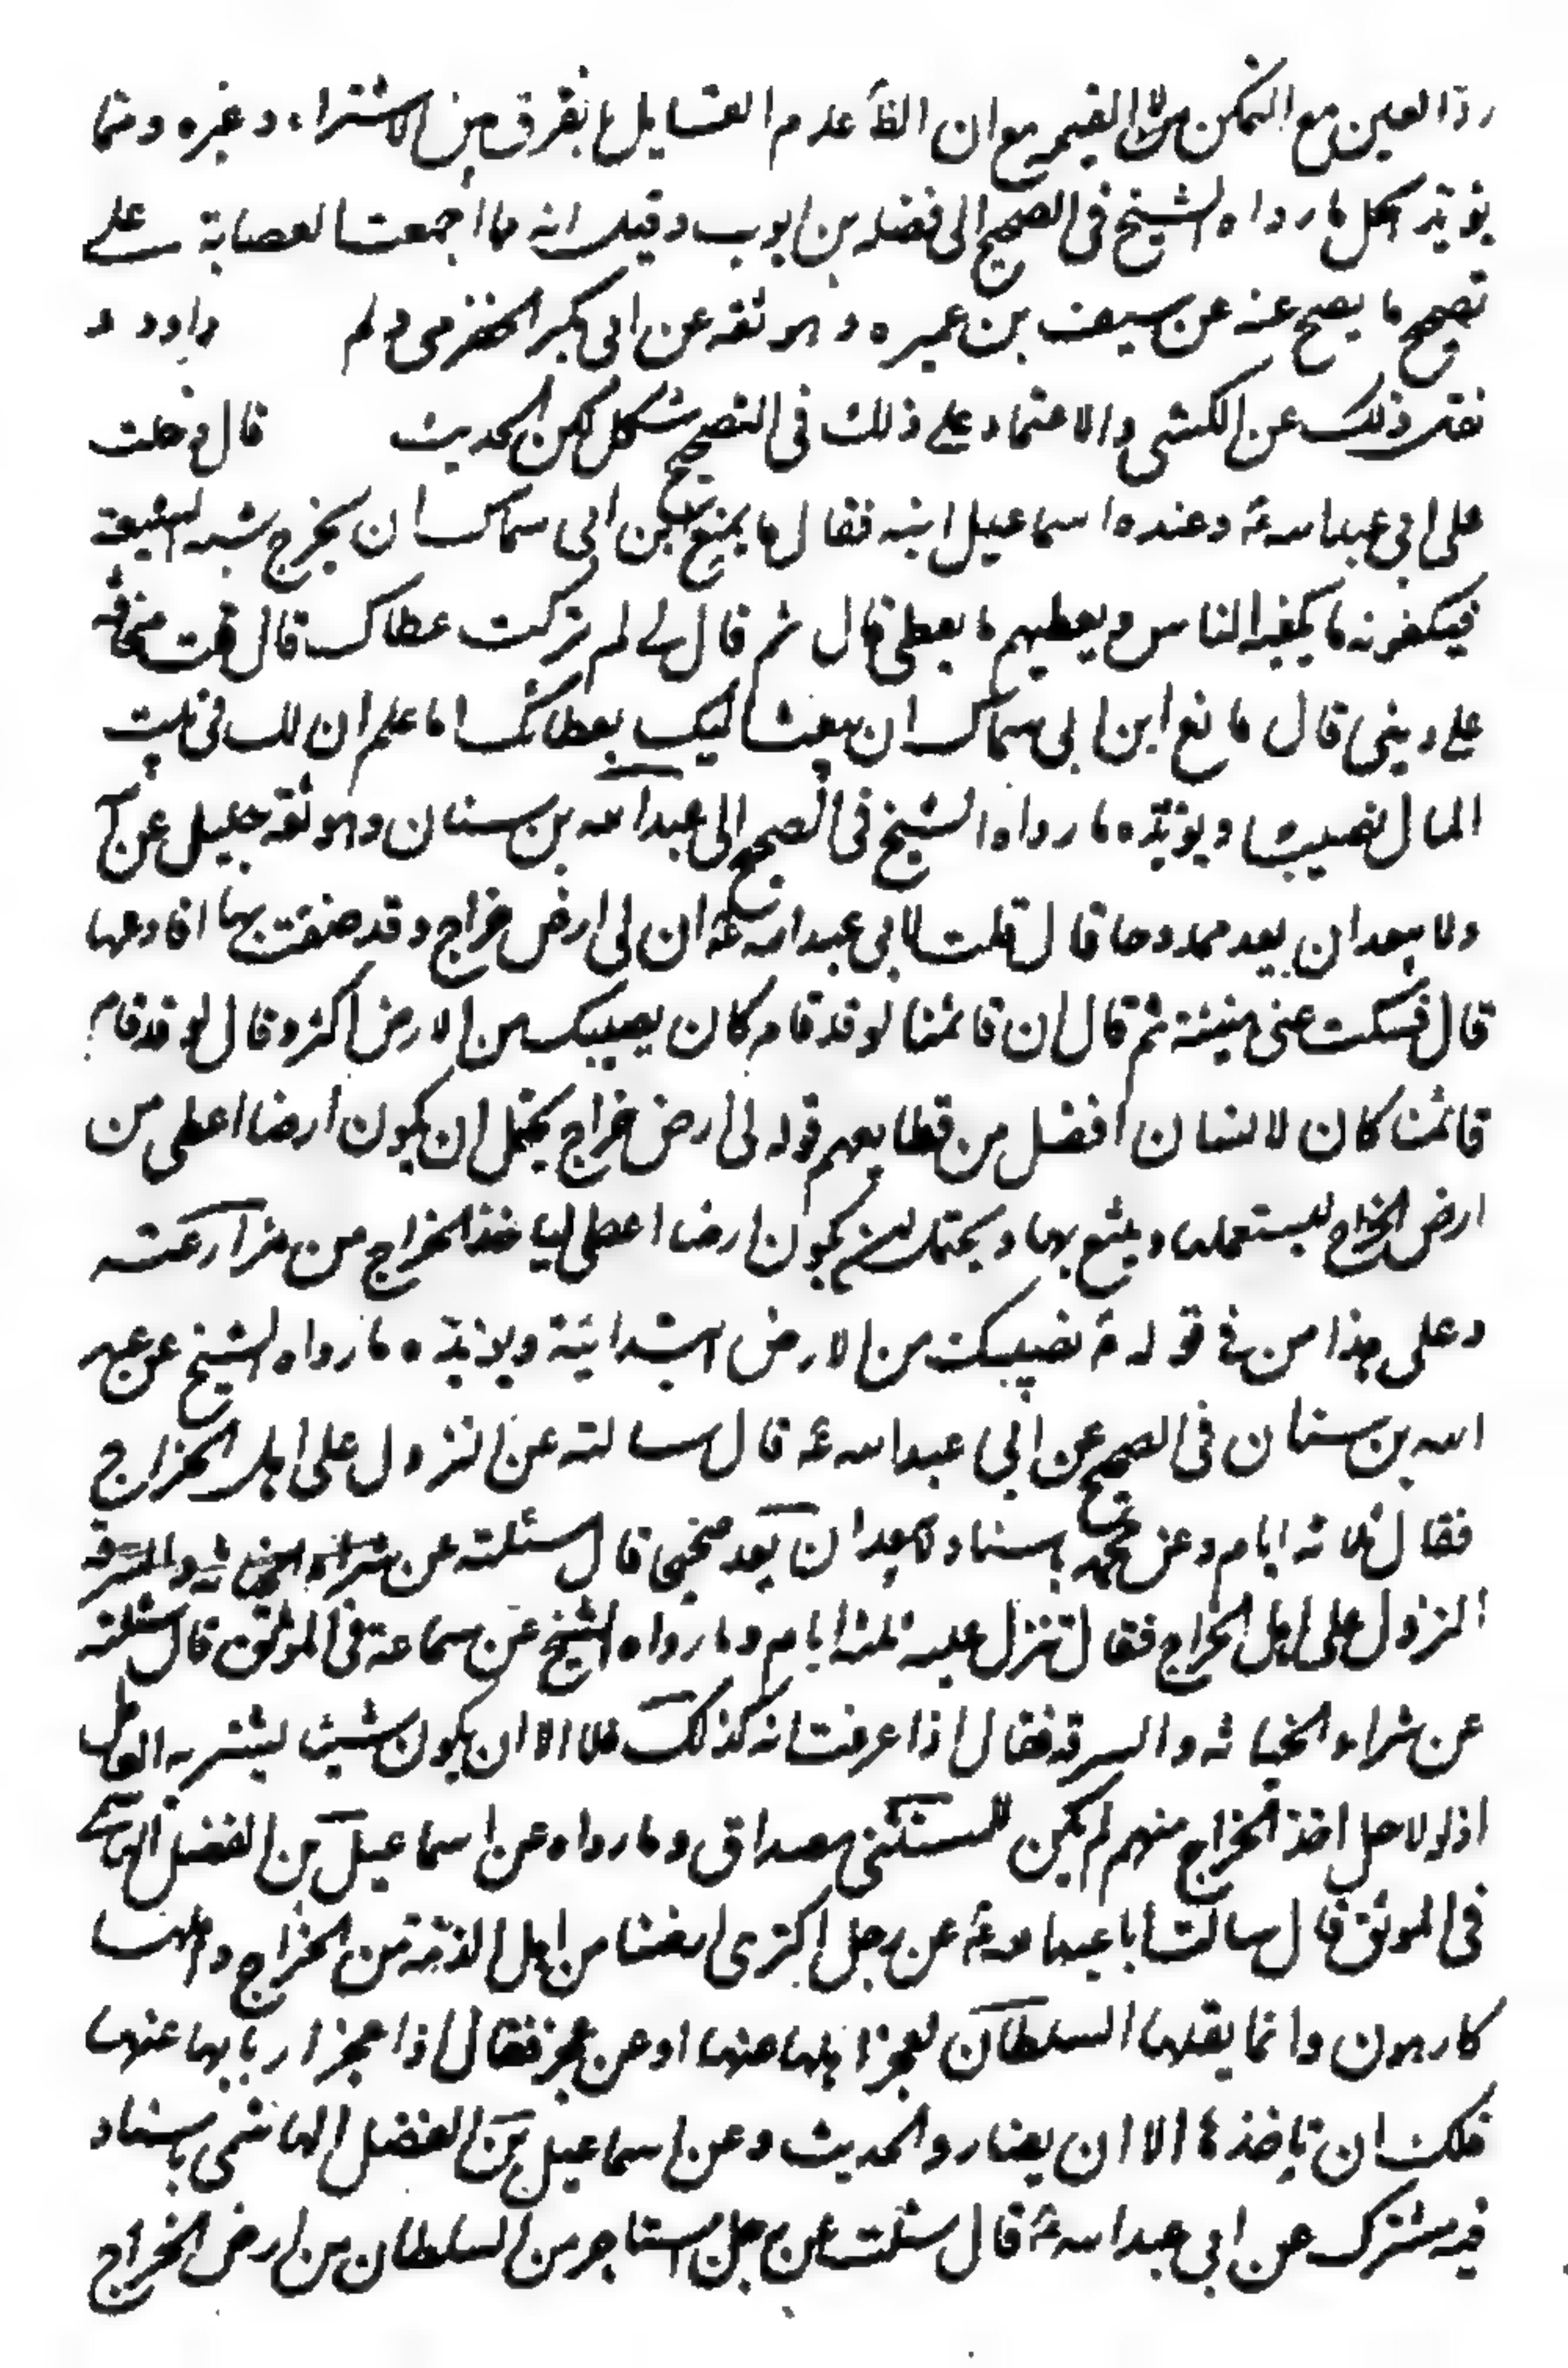 رد العين مع التمكن من القيمة مع ان الظ عدم القائل بفرق بين الاشتراء وغيره ومما
يؤيد الحل ما رواه الشيخ في الصحيح الى فضله بن ايوب وقيل انه مما اجمعت العصابة على
تصحيح ما يصح عنه عن سيف بن عميره وهو ثقه عن ابي بكر الحضرمي ولم داود و
نقل ذلك عن الكشي والاعتماد على ذلك في التصحيح مشكل لكن الحديث قال دخلت
على ابي عبد الله ع وعنده اسماعيل ابنه فقال ما يمنع ابن ابي سماك ان يخرج شبه الشيعة
فيكفونه ما يكفيه الناس ويعطيهم ما يعطي قال ثم قال لي لم تركت عطاك قال قلت مخافة
على ديني قال ما نع ابن ابي سماك ان يبعث اليك بعطائك اما علم ان لك في بيت
المال نصيبا ويؤيده ما رواه الشيخ في الصحيح الى عبد الله بن سنان وهو ثقة جليل عن
ولا يبعد ان يعد ممدوحا قال قلت لابي عبد الله ع ان لي ارض خراج وقد ضقت بها افادعها
قال فسكت عني هنيئة ثم قال ان قائمنا لو قد قام كان يصيبك من الارض اكثر وقال لو قد قام
قائمنا كان لانسان افضل من قطايعهم قوله لي ارض خراج يحتمل ان يكون ارضا اعطى من
ارض الخراج ليستعملها وينتفع بها ويحتمل ان يكون ارضا اعطى لياخذ الخراج من مزارعته
وعلى هذا من في قوله ع نصيبك من الارض ابتدائية ويؤيده ما رواه الشيخ عن عبد
الله بن سنان في الصحيح عن ابي عبد الله ع قال سالته عن النزول على اهل الخراج
فقال ثلاثه ايام وعن محمد باسناد لا يبعد ان يعد صحيحا قال سئلته عن
النزول على اهل الخراج فقال تنزل عليه ثلثة ايام وما رواه الشيخ عن سماعة في الموثق قال سئلته
عن شراء الخيانة والسرقة فقال اذا عرفت انه كذلك فلا الا ان يكون شيئا يشتريه العامل
اذ لولا حل اخذ الخراج منهم لم يكن للمستثنى مصداق وما رواه عن اسماعيل بن الفضل الهاشمي
في الموثق قال سالت ابا عبد الله ع عن رجل اكترى ارضا من اهل الذمة من الخراج واهلها
كارهون وانما يقبلها السلطان لعجز اهلها عنها او عن عجز فقال اذا عجز اربابها عنها
فلك ان تاخذها الا ان يضاروا الحديث وعن اسماعيل بن الفضل الهاشمي باسناد
فيه مشترك عن ابي عبد الله ع قال سئلت عن رجل استاجر من السلطان من ارض الخراج